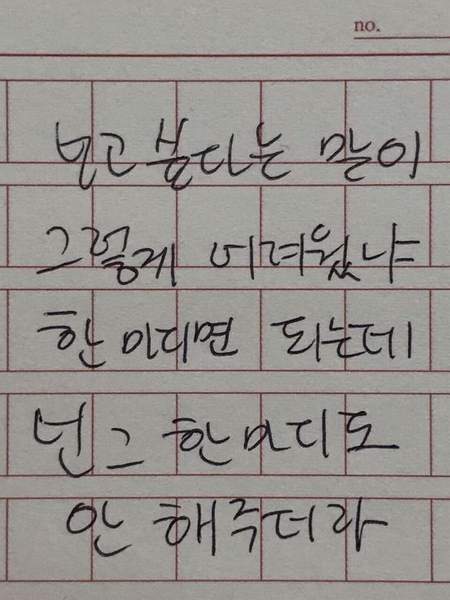 no.
보고 싶다는 말이
그렇게 어려웠냐
한 마디면 되는데
넌 그 한마디도
안 해주더라